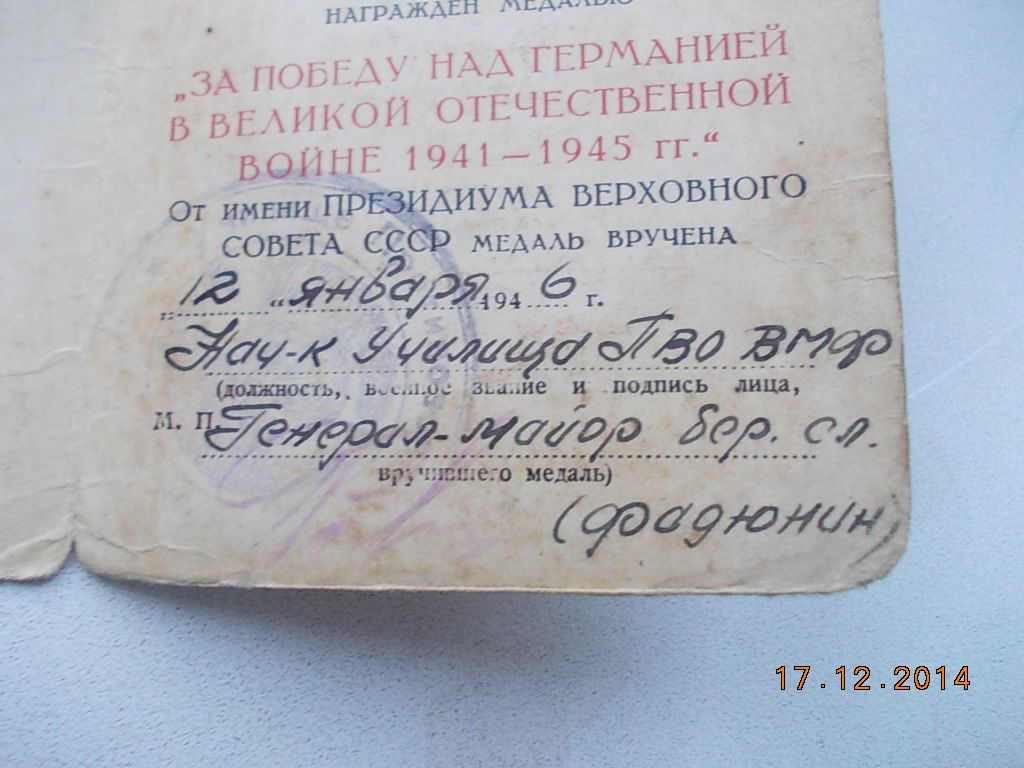 НАГРАЖДЕН МЕДАЛЬЮ
„ЗА ПОБЕДУ НАД ГЕРМАНИЕЙ
В ВЕЛИКОЙ ОТЕЧЕСТВЕННОЙ
ВОЙНЕ 1941—1945 гг.“
От имени ПРЕЗИДИУМА ВЕРХОВНОГО
СОВЕТА СССР МЕДАЛЬ ВРУЧЕНА
„12“ января 1946 г.
Нач-к Училища ПВО ВМФ
(должность, военное звание и подпись лица,
М. П. Генерал-майор бер. сл.
вручившего медаль)
(Фадюнин)
17.12.2014